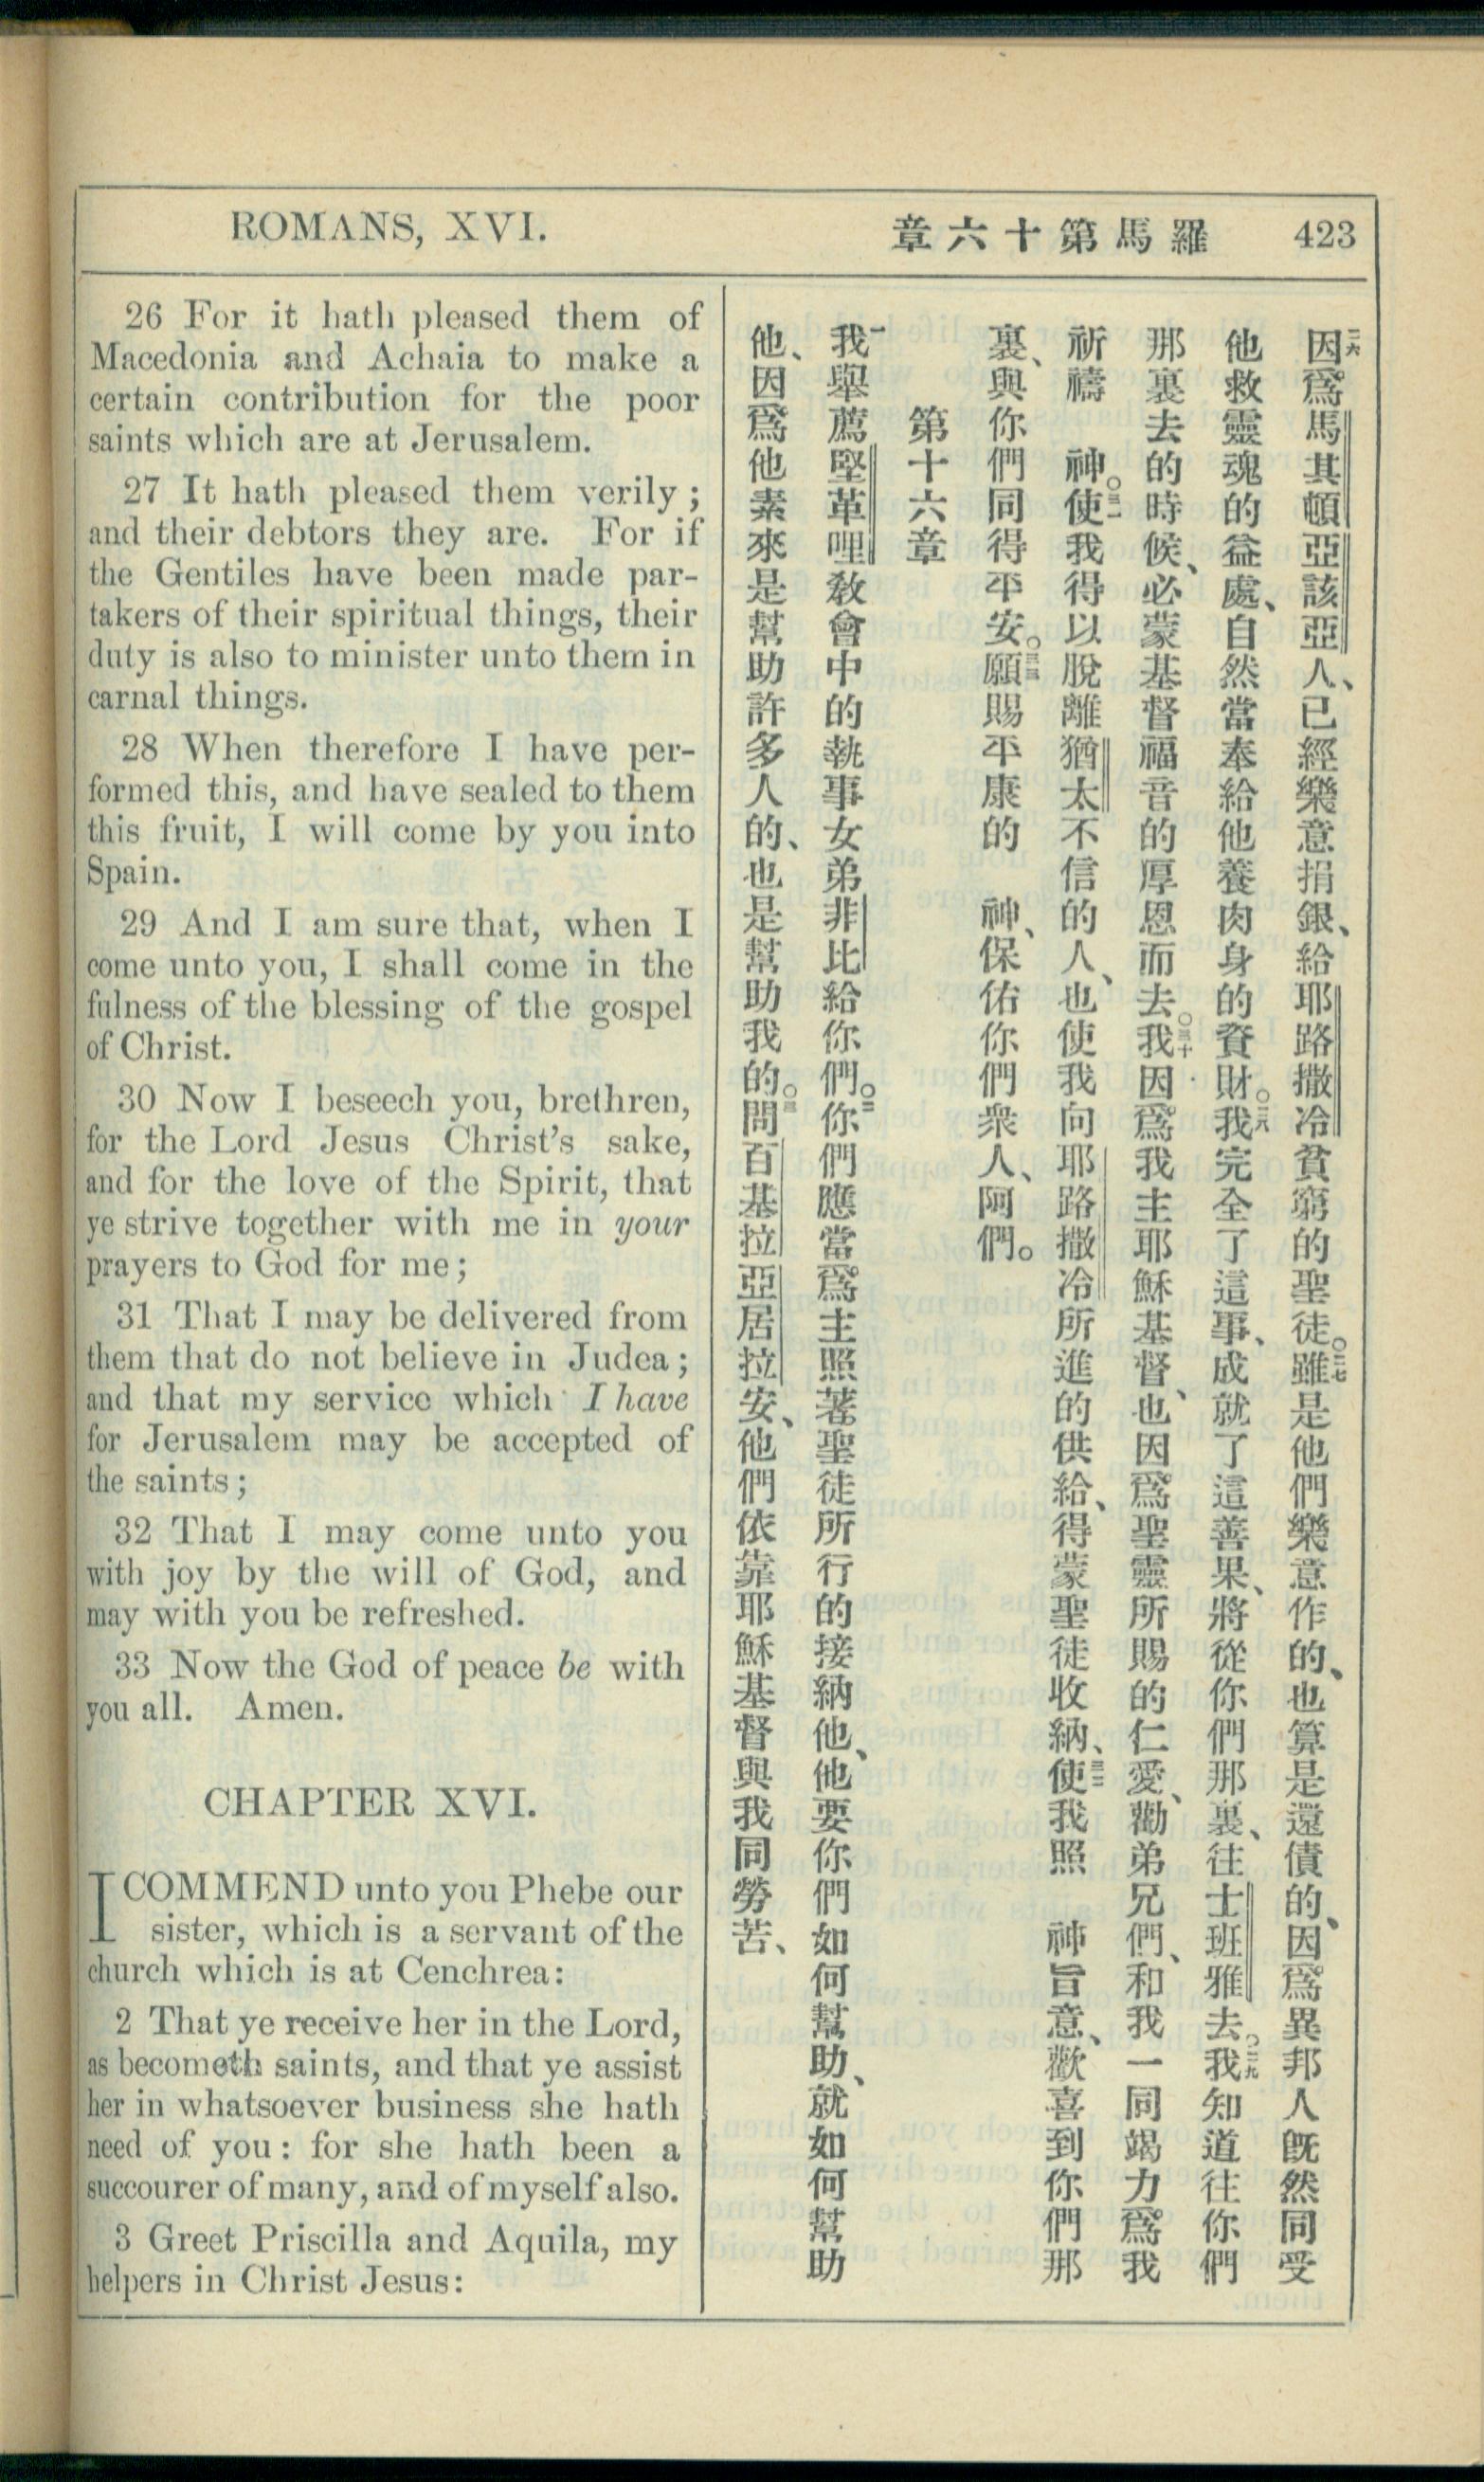 ROMANS, XVI.
羅馬第十六章
423
26 For it hath pleased them of
Macedonia and Achaia to make a
certain contribution for the poor
saints which are at Jerusalem.
27 It hath pleased them verily;
and their debtors they are. For if
the Gentiles have been made par-
takers of their spiritual things, their
duty is also to minister unto them in
carnal things.
28 When therefore I have per-
formed this, and have sealed to them
this fruit, I will come by you into
Spain.
29 And I am sure that, when I
come unto you, I shall come in the
fulness of the blessing of the gospel
of Christ.
30 Now I beseech you, brethren,
for the Lord Jesus Christ's sake,
and for the love of the Spirit, that
ye strive together with me in your
prayers to God for me;
31 That I may be delivered from
them that do not believe in Judea;
and that my service which I have
for Jerusalem may be accepted of
the saints;
32 That I may come unto you
with joy by the will of God, and
may with you be refreshed.
33 Now the God of peace be with
you all. Amen.
CHAPTER XVI.
I COMMEND unto you Phebe our
sister, which is a servant of the
church which is at Cenchrea:
2 That ye receive her in the Lord,
as becometh saints, and that ye assist
her in whatsoever business she hath
need of you: for she hath been a
succourer of many, and of myself also.
3 Greet Priscilla and Aquila, my
helpers in Christ Jesus:
二六因爲馬其頓亞該亞人、已經樂意捐銀、給耶路撒冷貧窮的聖徒。二七雖是他們樂意作的、也算是還債的、因爲異邦人旣然同受
他救靈魂的益處、自然當奉給他養肉身的資財。二八我完全了這事、成就了這善果、將從你們那裏、往士班雅去。二九我知道往你們
那裏去的時候、必蒙基督福音的厚恩而去。三十我因爲我主耶穌基督、也因爲聖靈所賜的仁愛、勸弟兄們、和我一同竭力爲我
祈禱 神。三一使我得以脫離猶太不信的人、也使我向耶路撒冷所進的供給、得蒙聖徒收納、三二使我照 神旨意、歡喜到你們那
裏、與你們同得平安。三三願賜平康的 神、保佑你們衆人、阿們。
第十六章
一我舉薦堅革哩敎會中的執事女弟非比給你們。二你們應當爲主照著聖徒所行的接納他、他要你們如何幫助、就如何幫助
他、因爲他素來是幫助許多人的、也是幫助我的。三問百基拉亞居拉安、他們依靠耶穌基督與我同勞苦、